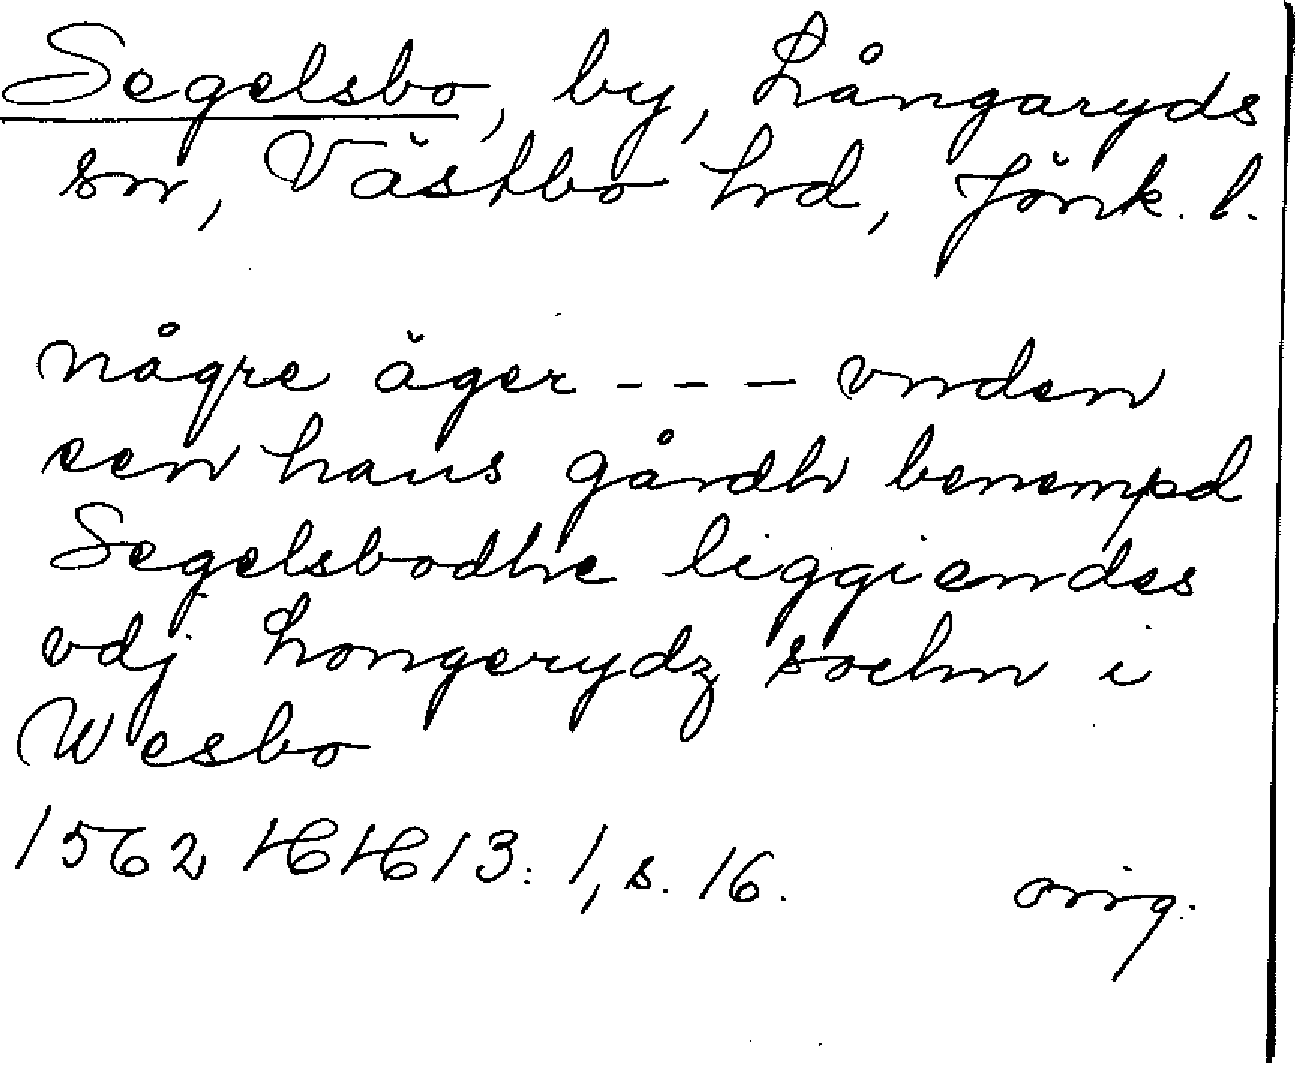 Segelsbo, by, Långaryds
sn, Västbo hd, Jönk. l.
någre äger - - - vnden
een hans gårdh benempd
Segelsbodhe liggiendes
vdj Longerydz sochn i
Wesbo
1562 HH 13:1, s. 16. orig.